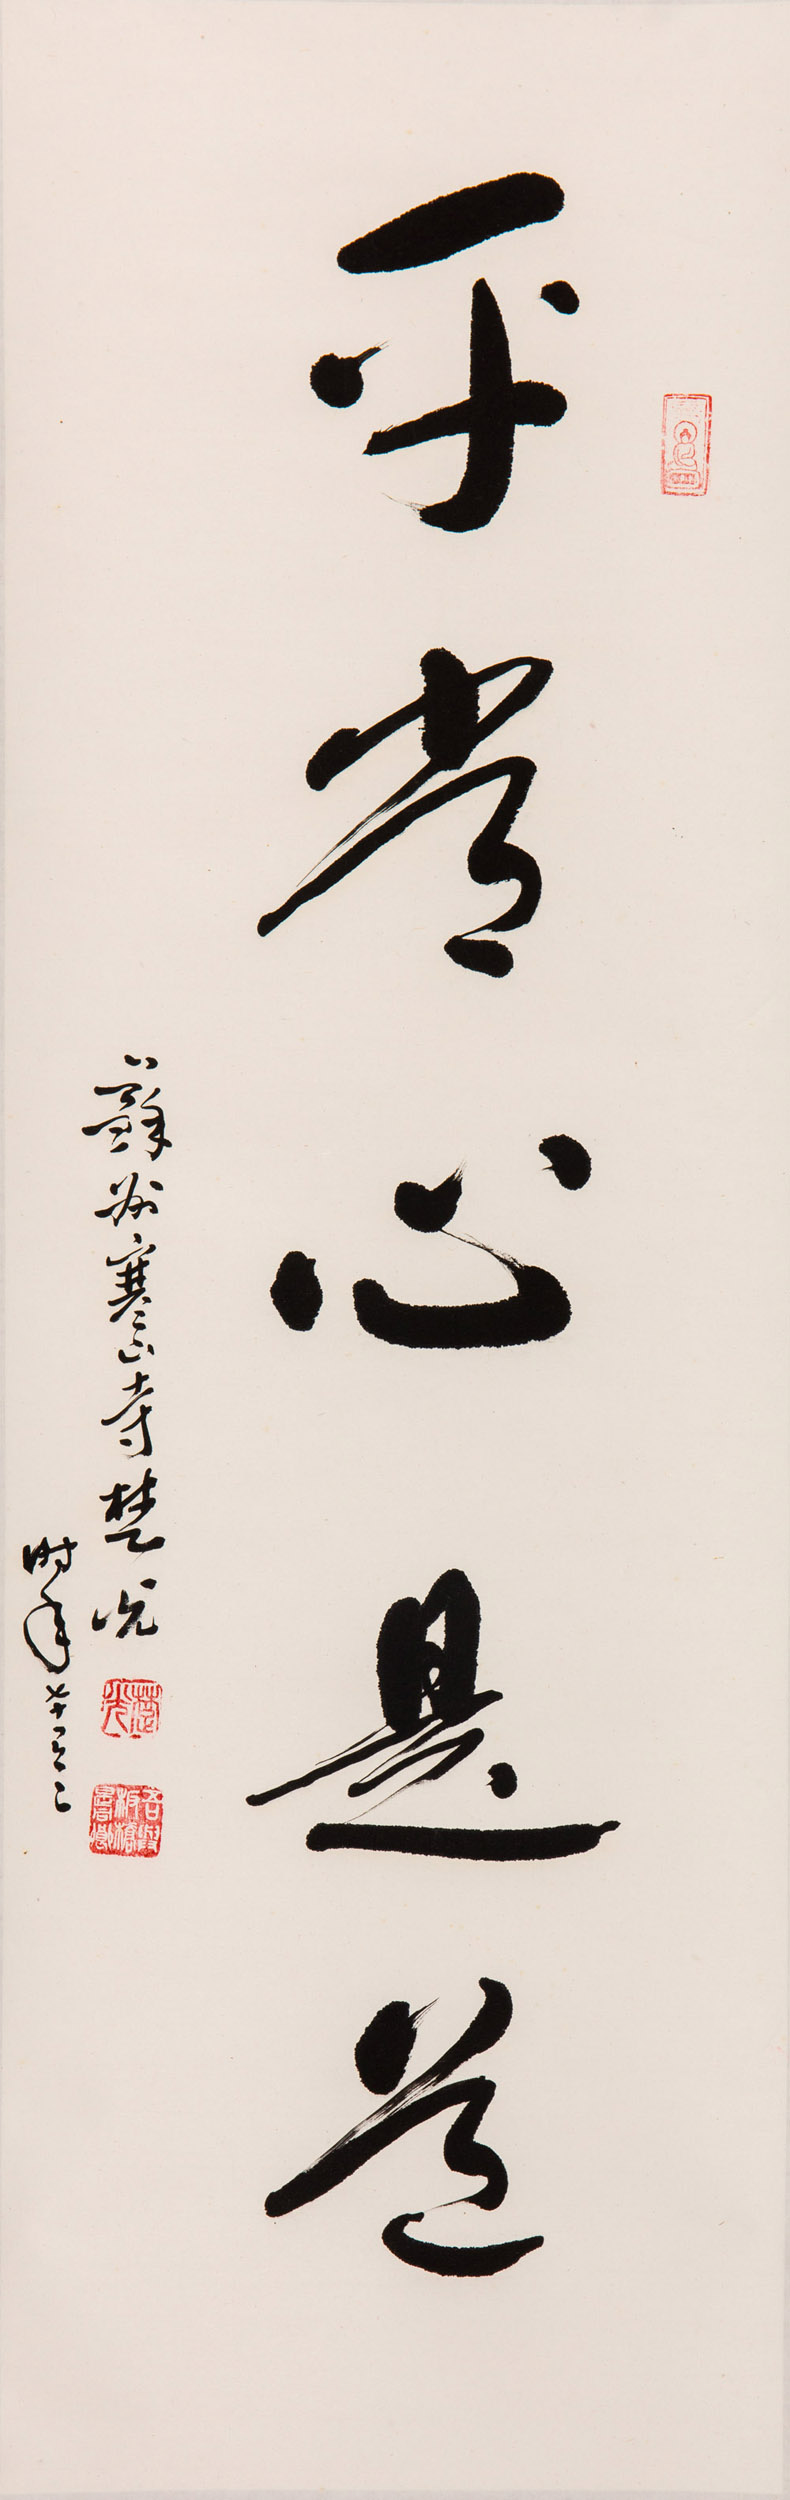 平常心是道
蘇州寒山寺楚光
时年七十又二
楚光